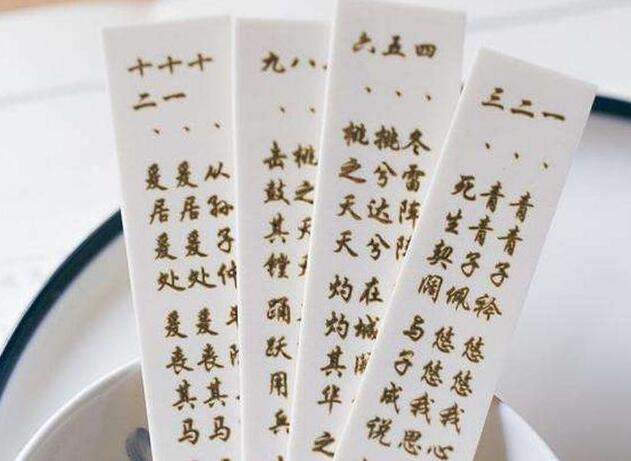 一、青青子衿 悠悠我心
二、青青子佩 悠悠我思
三、死生契阔 与子成说
四、冬雷阵阵
五、挑兮达兮 在城阙
六、桃之夭夭 灼灼其华 之
八、桃之夭
九、击鼓其镗 踊跃用兵
十、从孙子仲 平陈
十一、爰居爰处 爰丧其马
十二、爰居爰处 爰丧其马